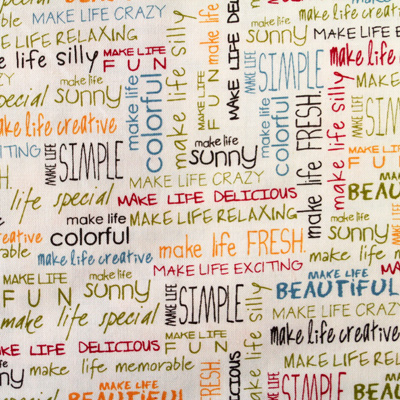 special BEAUTIFUL make life
MAKE LIFE CRAZY
make life creative
MAKE LIFE RELAXING
make life silly
make life fresh
MAKE LIFE DELICIOUS
make life sunny
MAKE LIFE FUN
MAKE LIFE SIMPLE
make life silly
make life
make life sunny
make life colorful
MAKE LIFE FUN
make life colorful
make life FRESH.
make life special
make life creative
make life sunny
MAKE LIFE SIMPLE
EXCITING
MAKE LIFE SIMPLE
MAKE LIFE FUN
MAKE LIFE CRAZY
MAKE LIFE BEAUTIFUL
life special
MAKE LIFE DELICIOUS
make life colorful
MAKE LIFE RELAXING
make life sunny
creative
make life creative
make life FRESH.
make life
MAKE LIFE EXCITING
MAKE LIFE FUN
make life sunny
MAKE LIFE SIMPLE
make life silly
MAKE LIFE BEAUTIFUL
MAKE LIFE CRAZY
make life special
MAKE LIFE FUN
make life creative
MAKE LIFE DELICIOUS
MAKE LIFE RELAXING
sunny
make life memorable
FRESH.
MAKE LIFE SIMPLE
MAKE LIFE BEAUTIFUL
make life